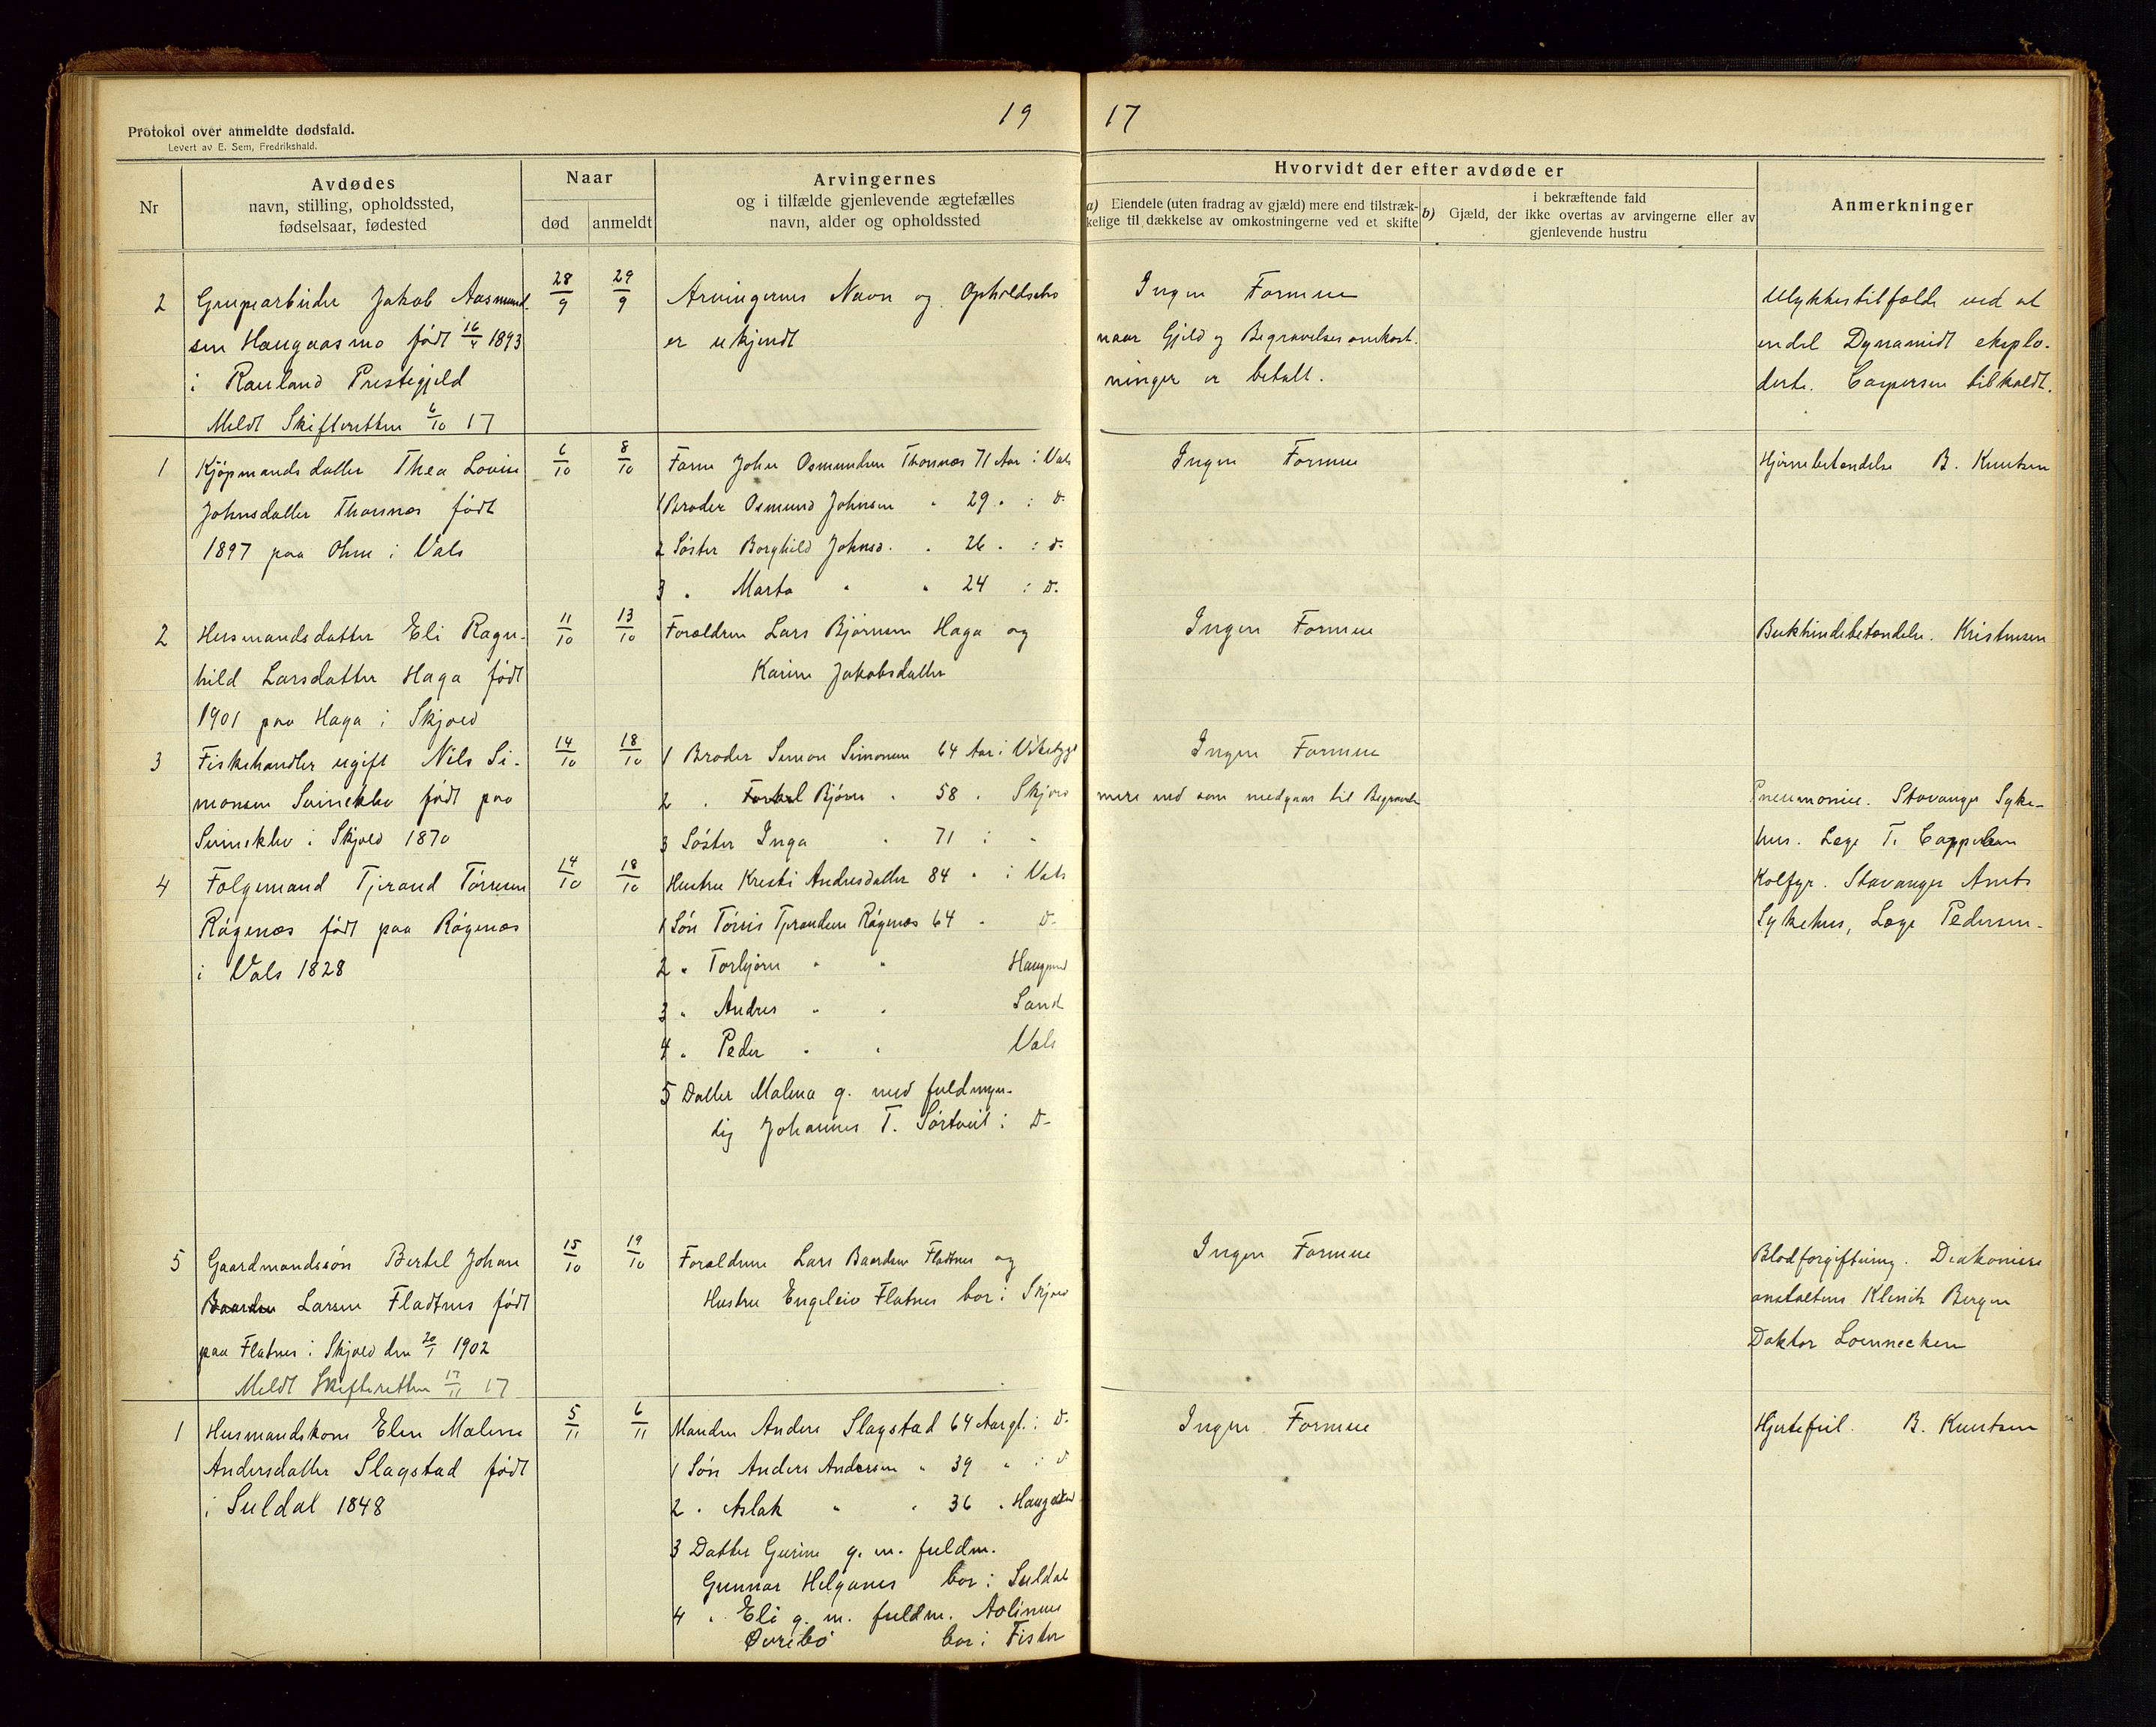 19 17
Protokol over anmeldte dødsfald.
Levert av E. Sem, Fredrikshald.
Nr
Avdødes
navn, stilling, opholdssted,
fødselsaar, fødested
Naar
død anmeldt
Arvingernes
og i tilfælde gjenlevende ægtefælles
navn, alder og opholdssted
Hvorvidt der efter avdøde er
a) Eiendele (uten fradrag av gjæld) mere end tilstræk-
kelige til dækkelse av omkostningerne ved et skifte
i bekræftende fald
b) Gjæld, der ikke overtas av arvingerne eller av
gjenlevende hustru
Anmerkninger
2 Grupearbeider Jakob Aasmund-
sen Haugaasmo født 16/4 1893
i Rauland Prestegjeld
Meldt Skifteretten 6/10 17
28/9 29/9
Arvingernes Navn og
er ukjendt
Ingen Formue
naar Gjeld og Begravelsesomkost-
ninger er betalt.
Ulykkestilfælde ved at
endel Dynamidt eksplo-
derte. Caspersen tilkaldt.
1 Kjøpmandsdatter Thea Lovise
Johnsdatter Thonnes født
1897 paa Ohm i Vats
6/10 8/10
Farne John Osmundsen Thonnes 71 Aar i Vats
1 Broder Osmund Johnsen " 29 " i d-
2 Søster Borghild Johnsd. " 26 " i d-
3 " Marta " " 24 i d-
Ingen Formue
Hjernebetændelse B. Knutsen
2 Husmandsdatter Eli Ragn-
hild Larsdatter Haga født
1901 paa Haga i Skjold
11/10 13/10
Forældrene Lars Bjørnsen Haga og
Karine Jakobsdatter
Ingen Formue
Bukhindebetændelse. Kristensen
3 Fiskehandler ugift Nils Si-
monsen Svineklev født paa
Svineklev i Skjold 1870
14/10 18/10
1 Broder Simon Simonsen 64 Aar i
2 " Bjørn " 58 " Skjold
3 Søster Inga " 71 i "
Ingen Formue
mere end som medgaar til Begravelse
Pneumonie. Stavanger Syke-
hus. Læge T. Cappelen
4 Følgemand Tjerand Tørresen
Røgenes født paa Røgenes
i Vats 1828
14/10 18/10
Hustru Kresti Andresdatter 84 " i Vats
1 Søn Tørris Tjerandsen Røgenes 64 " d-
2 " Torbjørn " " Haugesund
3 " Andres " " Sand
4 " Peder " " Vats
5 Datter Malena g. med fuldmyn-
dig Johannes T. Sørtveit i d-
Stavanger Amts
Sykehus, Læge Pedersen-
5 Gaardmandssøn Bertel Johan
Baardsen Larsen Fladtnes født
paa Flatnes i Skjold den 20/1 1902
Meldt Skifteretten 17/11 17
15/10 19/10
Forældrene Lars Baardsen Flatnes og
Hustru Engeleiv Flatnes bor i Skjold
Ingen Formue
Blodforgiftning. Diakonisse
anstaltens Klinik Bergen
Doktor Loennecken
1 Husmandskone Elen Malene
Andersdatter Slagstad født
i Suldal 1848
5/11 6/11
Manden Anders Slagstad 64 Aar gl. i d-
1 Søn Anders Andersen " 39 " i d-
2 " Aslak " " 36 " Haugesund
3 Datter Gurine g. m. fuldm.
Gunnar Helganes bor i Suldal
4 " Eli g. m. fuldm.
Øvrebø bor i Fister
Ingen Formue
Hjertefeil. B. Knutsen